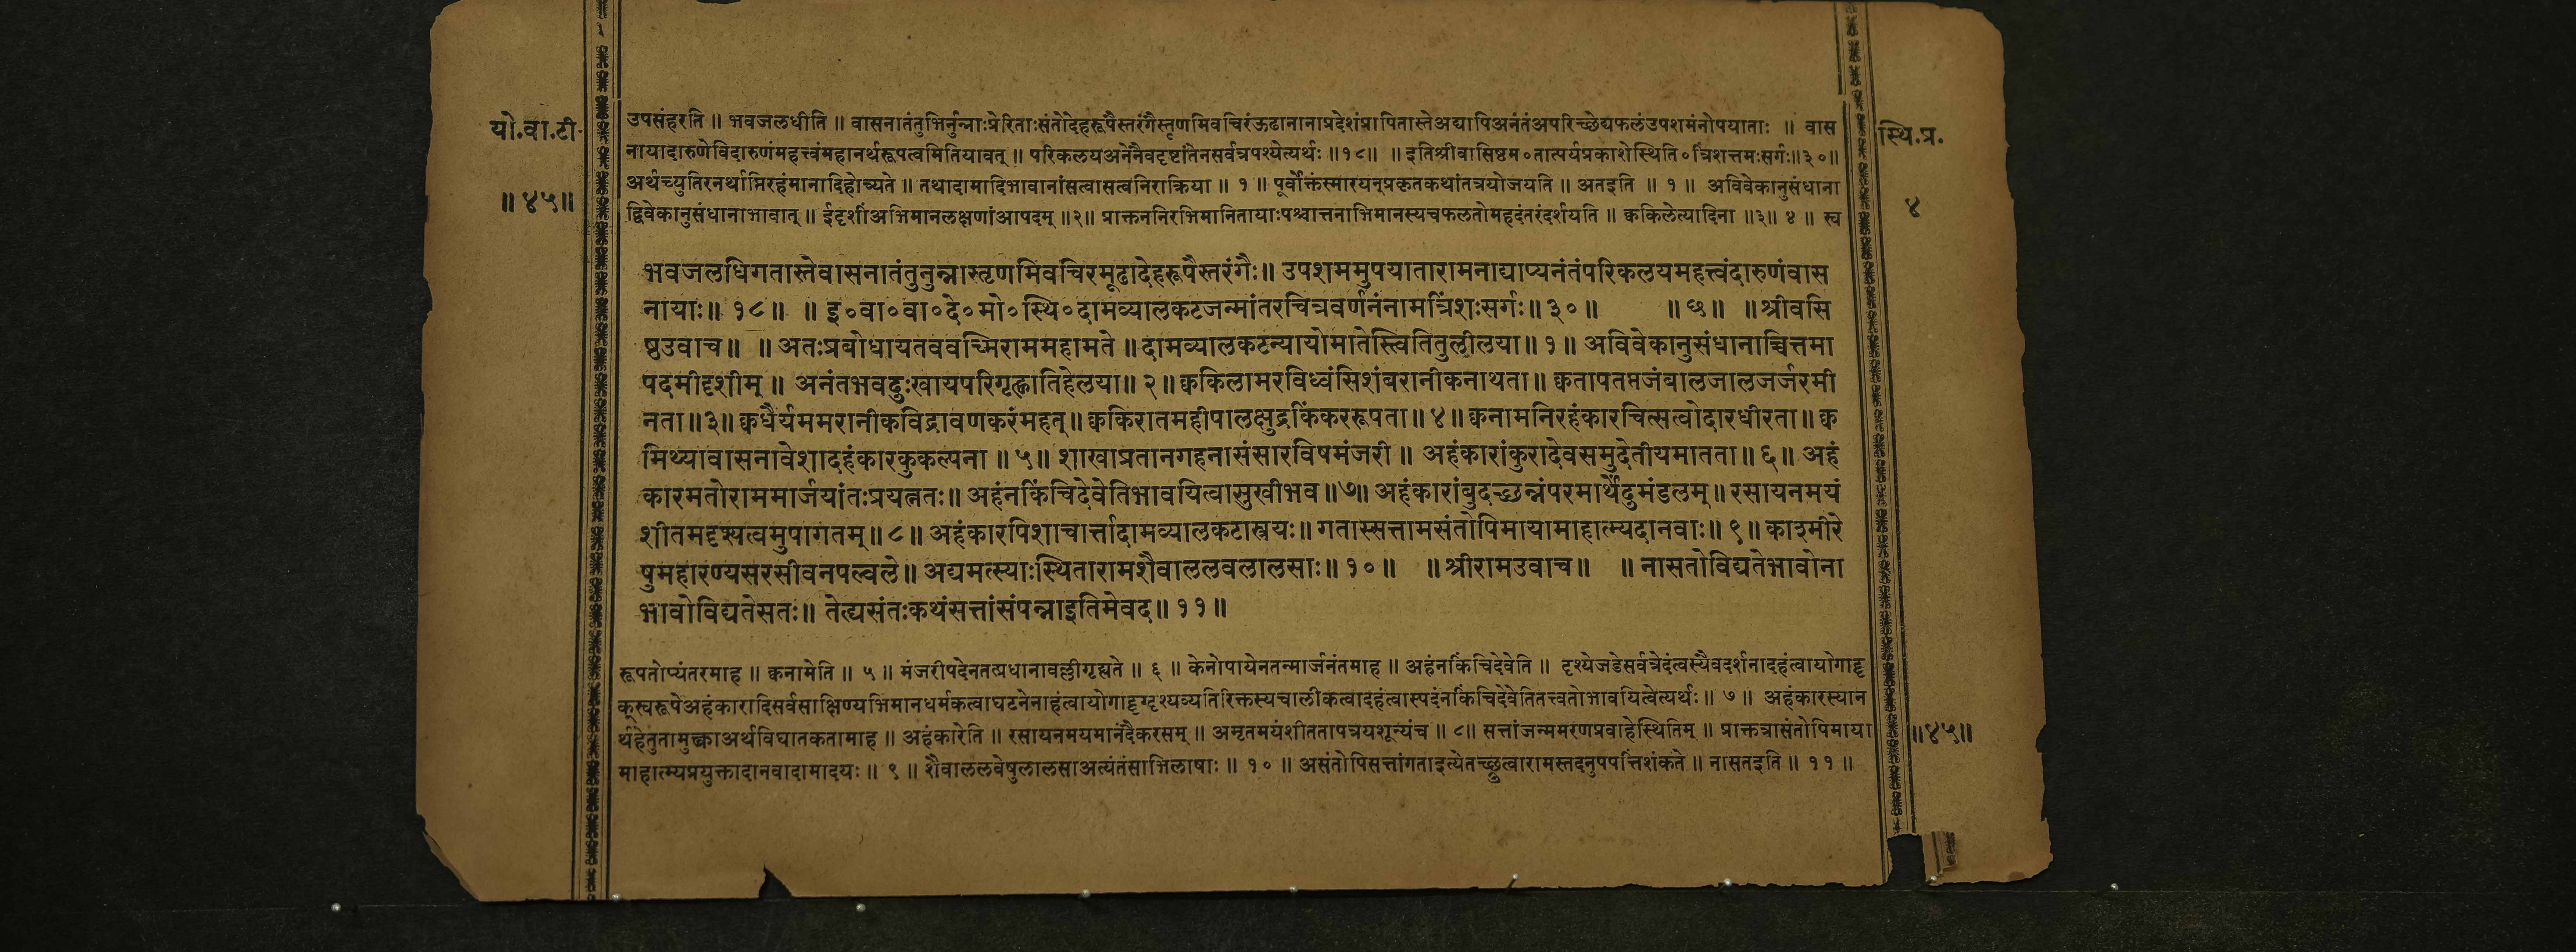 यो.वा.टी.
॥४५॥
उपसंहरति ॥ भवजलधीति ॥ वासनातंतुभिर्नुन्नाःप्रेरिताःसंतोदेहरूपैस्तरंगैस्तृणमिवचिरंऊढानानाप्रदेशंप्रापितास्तेअद्यापिअनंतंअपरिच्छेद्यफलंउपशमंनोपयाताः ॥ वास
नायादारुणेविदारुणंमहत्त्वंमहानर्थरूपत्वमितियावत् ॥ परिकलयअनेनैवदृष्टांतेनसर्वत्रपश्येत्यर्थः ॥१८॥ ॥ इतिश्रीवासिष्ठम०तात्पर्यप्रकाशेस्थिति०त्रिंशत्तमःसर्गः॥३०॥
अर्थच्युतिरनर्थाप्तिरहंमानादिहोच्यते ॥ तथादामादिभावानांसत्वासत्वनिराक्रिया ॥ १ ॥ पूर्वोक्तंस्मारयन्प्रकृतकथांतत्रयोजयति ॥ अतइति ॥ १ ॥ अविवेकानुसंधाना
द्विवेकानुसंधानाभावात् ॥ ईदृशींअभिमानलक्षणांआपदम् ॥२॥ प्राक्तननिरभिमानितायाःपश्चात्तनाभिमानस्यचफलतोमहदंतरंदर्शयति ॥ क्वकिलेत्यादिना ॥३॥ ४ ॥ स्व
भवजलधिगतास्तेवासनातंतुनुन्नास्तृणमिवचिरमूढादेहरूपैस्तरंगैः॥ उपशममुपयातारामनाद्याप्यनंतंपरिकलयमहत्त्वंदारुणंवास
नायाः॥ १८॥ ॥ इ०वा०वा०दे०मो०स्थि०दामव्यालकटजन्मांतरचित्रवर्णनंनामत्रिंशःसर्गः॥ ३०॥ ॥ छ॥ ॥ श्रीवसि
ष्ठउवाच॥ ॥ अतःप्रबोधायतववच्मिराममहामते ॥ दामव्यालकटन्यायोमातेस्त्वितितुलीलया॥ १॥ अविवेकानुसंधानाच्चित्तमा
पदमीदृशीम् ॥ अनंतभवदुःखायपरिगृह्णातिहेलया॥ २॥ क्वकिलामरविध्वंसिशंबरानीकनाथता॥ क्वतापतप्तजंबालजालजर्जरमी
नता॥३॥ क्वधैर्यममरानीकविद्रावणकरंमहत्॥ क्वकिरातमहीपालक्षुद्रकिंकररूपता॥ ४॥ क्वनामनिरहंकारचित्सत्वोदारधीरता॥ क्व
मिथ्यावासनावेशादहंकारकुकल्पना ॥ ५॥ शाखाप्रतानगहनासंसारविषमंजरी ॥ अहंकारांकुरादेवसमुदेतीयमातता॥ ६॥ अहं
कारमतोराममार्जयांतःप्रयत्नतः॥ अहंनकिंचिदेवेतिभावयित्वासुखीभव॥७॥ अहंकारांबुदच्छन्नंपरमार्थेंदुमंडलम्॥ रसायनमयं
शीतमदृश्यत्वमुपागतम्॥ ८॥ अहंकारपिशाचार्त्तादामव्यालकटास्त्रयः॥ गतास्सत्तामसंतोपिमायामाहात्म्यदानवाः॥ ९॥ काश्मीरे
षुमहारण्यसरसीवनपल्वले॥ अद्यमत्स्याःस्थितारामशैवाललवलालसाः॥ १०॥ ॥ श्रीरामउवाच॥ ॥ नासतोविद्यतेभावोना
भावोविद्यतेसतः॥ तेह्यसंतःकथंसत्तांसंपन्नाइतिमेवद॥ ११॥
रूपतोप्यंतरमाह ॥ क्वनामेति ॥ ५ ॥ मंजरीपदेनतत्प्रधानावल्लीगृह्यते ॥ ६ ॥ केनोपायेनतन्मार्जनंतमाह ॥ अहंनकिंचिदेवेति ॥ दृश्येजडेसर्वत्रेदंत्वस्यैवदर्शनादहंत्वायोगादृ
क्स्वरूपेअहंकारादिसर्वसाक्षिण्यभिमानधर्मकत्वाघटनेनाहंत्वायोगादृग्दृश्यव्यतिरिक्तस्यचालीकत्वादहंत्वास्पदंनकिंचिदेवेतितत्त्वतोभावयित्वेत्यर्थः॥ ७ ॥ अहंकारस्यान
र्थहेतुतामुक्त्वाअर्थविघातकतामाह ॥ अहंकारेति ॥ रसायनमयमानंदैकरसम् ॥ अमृतमयंशीततापत्रयशून्यंच ॥ ८॥ सत्तांजन्ममरणप्रवाहेस्थितिम् ॥ प्राक्तत्रासंतोपिमाया
माहात्म्यप्रयुक्तादानवादामादयः ॥ ९ ॥ शैवाललवेषुलालसाअत्यंतंसाभिलाषाः ॥ १० ॥ असंतोपिसत्तांगताइत्येतच्छ्रुत्वारामस्तदनुपपत्तिंशंकते ॥ नासतइति ॥ ११ ॥
स्थि.प्र.
४
॥४५॥